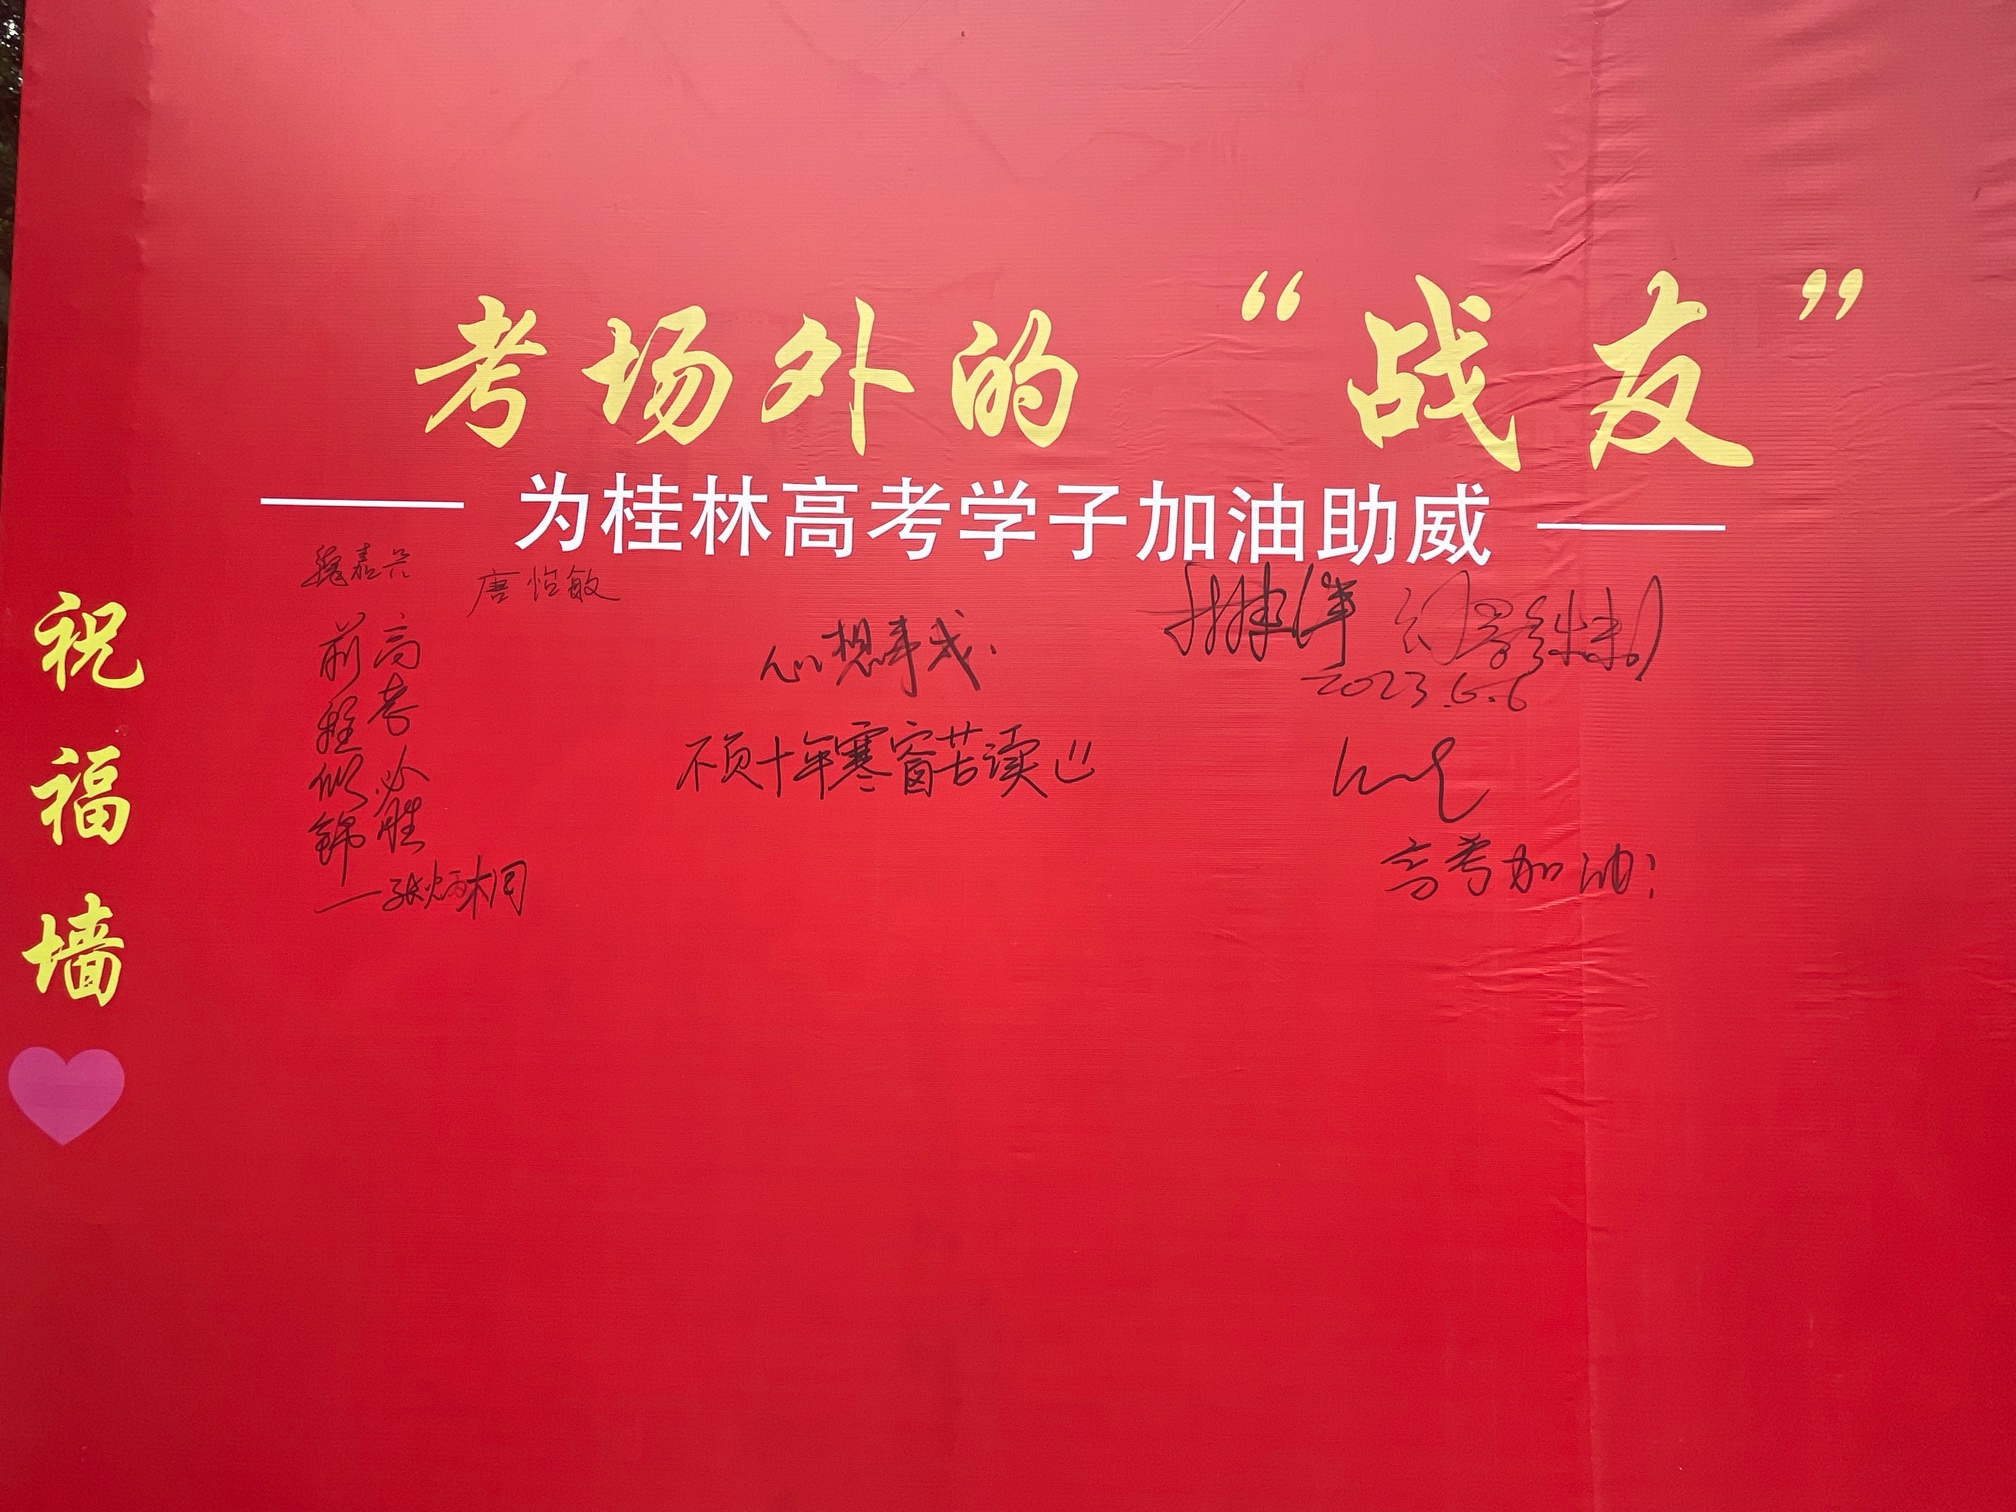 考场外的“战友”
为桂林高考学子加油助威
祝福墙
唐怡敏
高考必胜
前程似锦
——张炳桐
心想事成.
不负十年寒窗苦读
2023.6.6
高考加油!